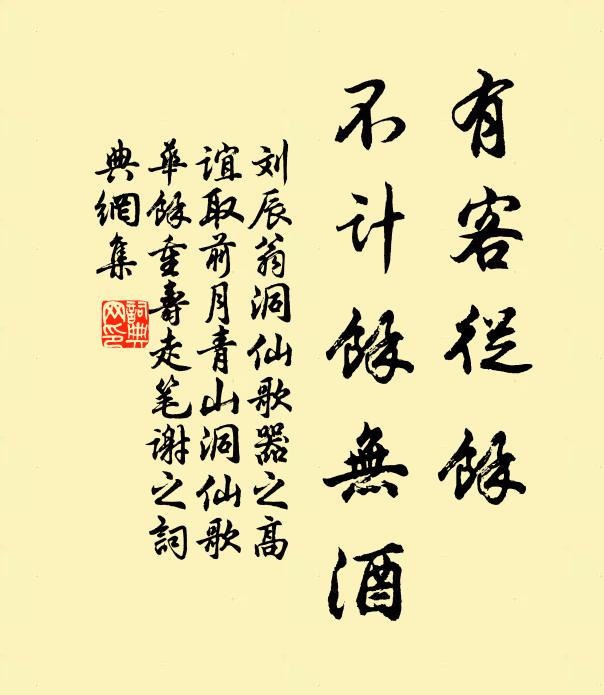 有客從餘
不计餘無酒
刘辰翁洞仙歌器之高
谊取前月青山洞仙歌
華餘重壽走笔谢之詞
典網集
詞典
网印